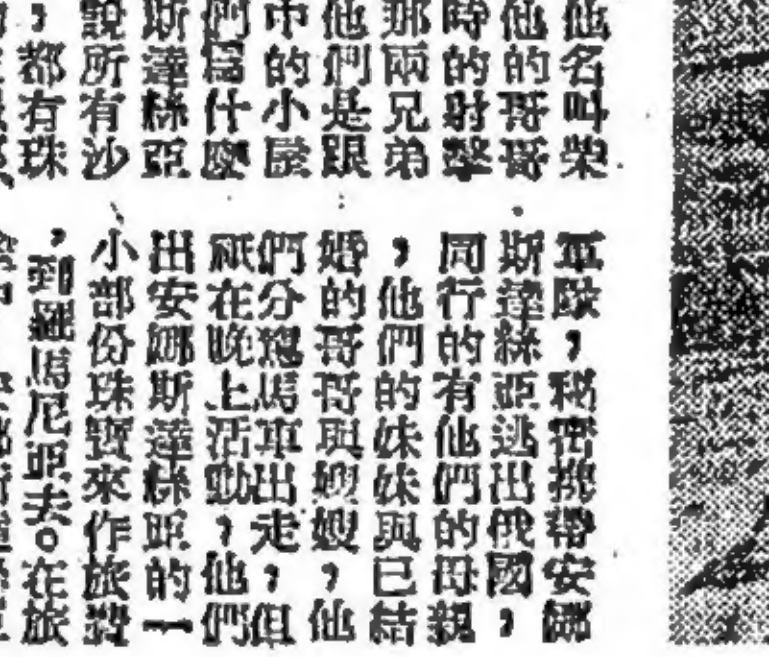 他名叫柴
他的哥哥
時的射擊
那兩兄弟
他們是跟
市的小屋
們爲什麼
斯達絲亞
說所有沙
，都有珠
軍隊，秘密挪帶安娜
斯達絲亞逃出俄國，
同行的有他們的母親
，他們的妹妹與已結
婚的哥哥與嫂嫂，他
們分駕馬車出走，但
祇在晚上活動，他們
出安娜斯達絲亞的一
小部份珠寶來作旅費
，到羅馬尼亞去。在旅